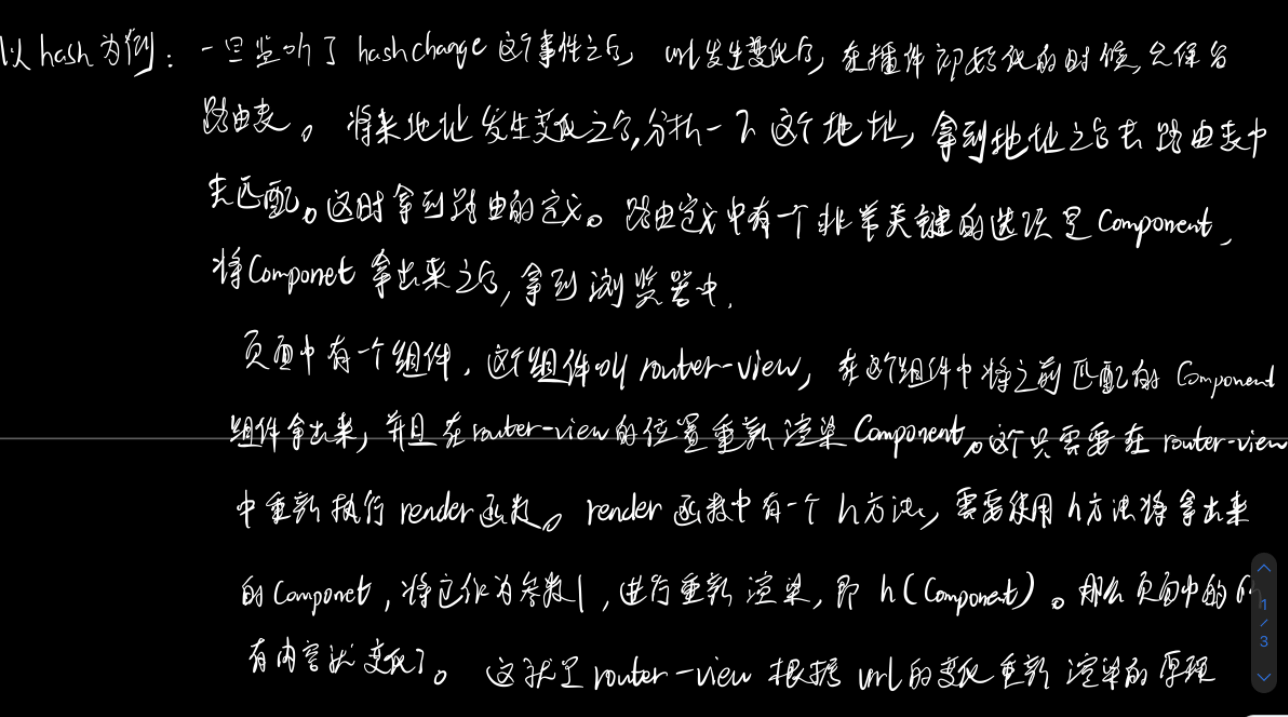 以hash为例：一旦监听了hashchange这个事件之后，url发生变化后，在插件初始化的时候，会保留
路由表。将来地址发生变化之后，分析一下这个地址，拿到地址之后去路由表中
去匹配。这时拿到路由的定义。路由定义中有一个非常关键的选项是Component，
将Componet拿出来之后，拿到浏览器中.
页面中有一个组件，这个组件叫router-view，在这个组件中将之前匹配的Component
组件拿出来，并且在router-view的位置重新渲染Component。这个只需要在router-view
中重新执行render函数。render函数中有一个h方法，需要使用h方法将拿出来
的Componet，将它作为参数1，进行重新渲染，即h(Component)。那么页面中的
有内容就变化了。这就是router-view根据url的变化重新渲染的原理
1
/
3